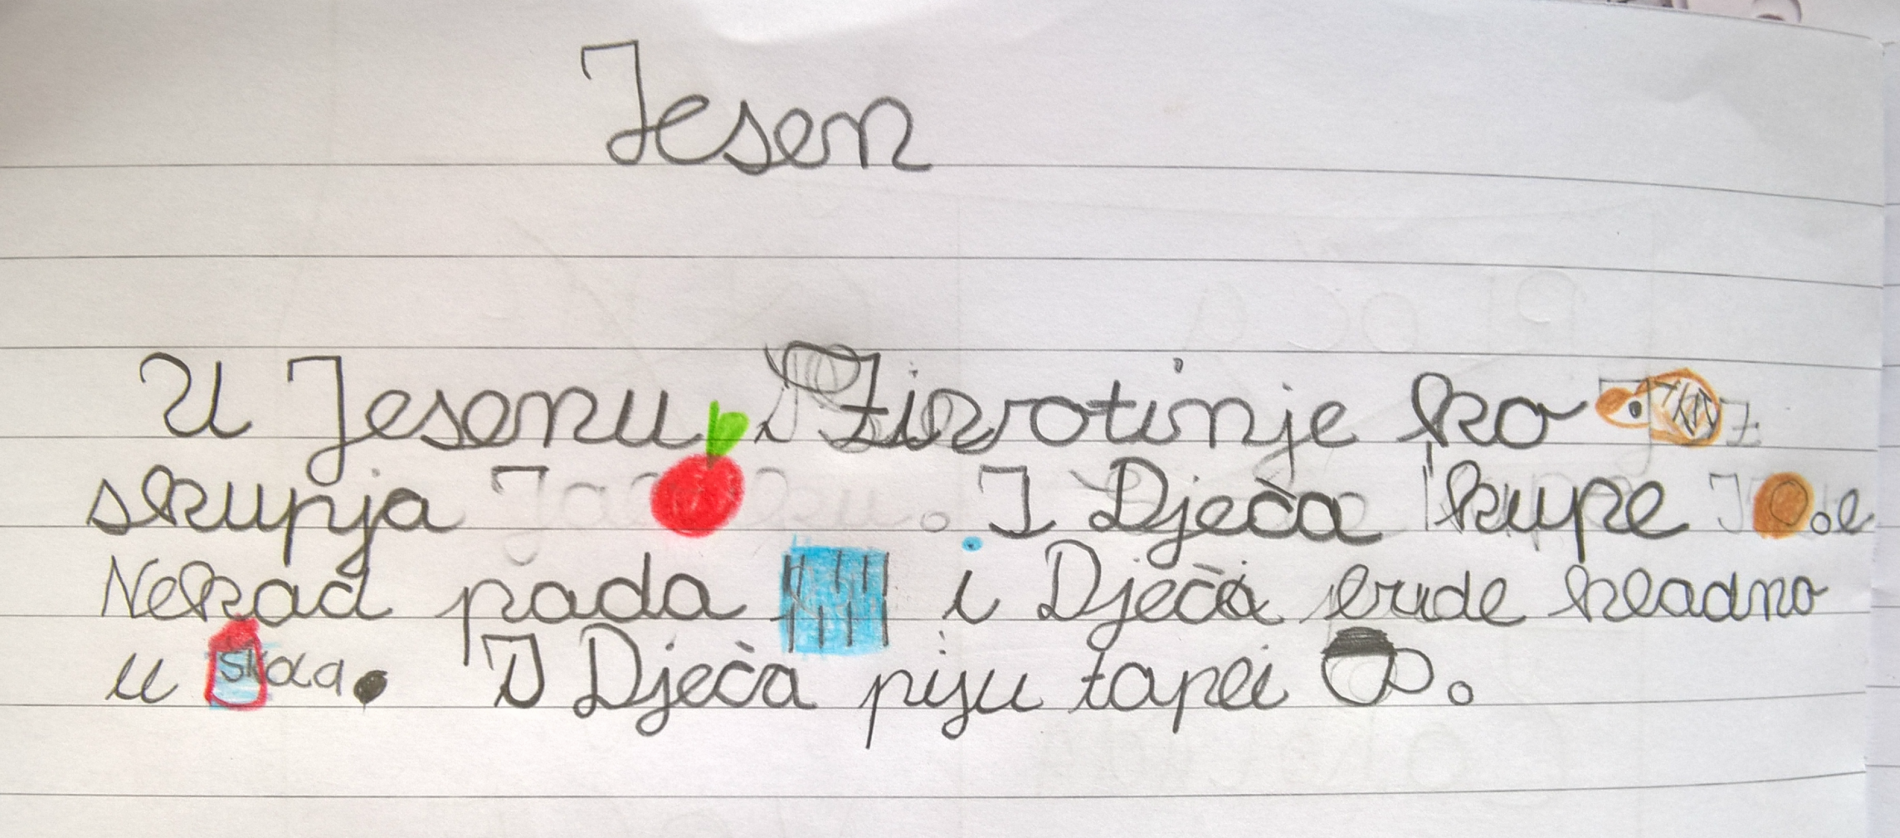 Jesen
U Jesenu Životinje ko ž
skupja . I Dječa kupe .e
Nekad pada i Dječa kladno
u škola. I Dječa piju tapli .